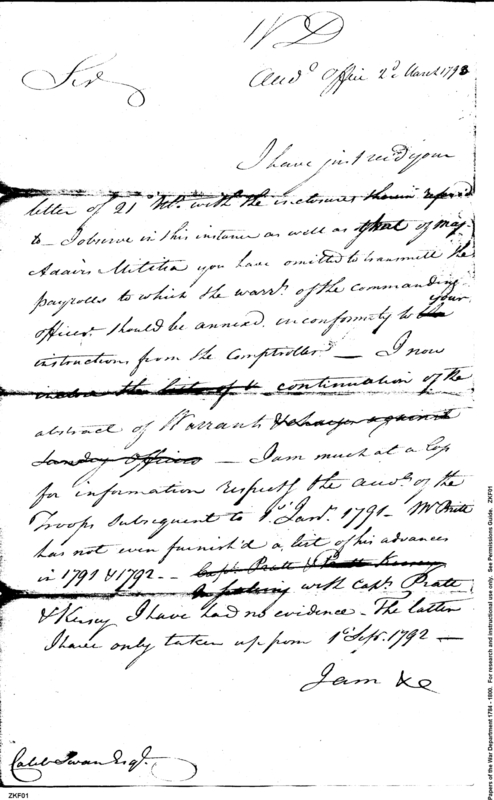 WD
Sir
Aud.º Office 2.d March 1793
I have just rec'd your
letter of 21 Feb.y with the inclosures therein referred
to — I observe in this instance as well as that of Maj.
Adairs Militia you have omitted to transmitt the
payrolls to which the warr.ts of the commanding
officers should be annexed in conformity to your
instructions from the Comptroller — I now
inclose the list of & continuation of the
abstract of Warrants & charges against
sundry officers — I am much at a loss
for information respectg the acco.ts of the
Troops subsequent to 1.st Jan.y 1791 — Mr Britt
has not even furnish'd a list of his advances
in 1791 & 1792 — Cap.t Pratt & Kersey
with Cap.t Pratt
& Kersey I have had no evidence — The latter
I have only taken up from 1.st Sep.t 1792 —
I am &c
Caleb Swan Esq.r
ZKF01
Papers of the War Department 1784 - 1800. For research and instructional use only. See Permissions Guide. ZKF01